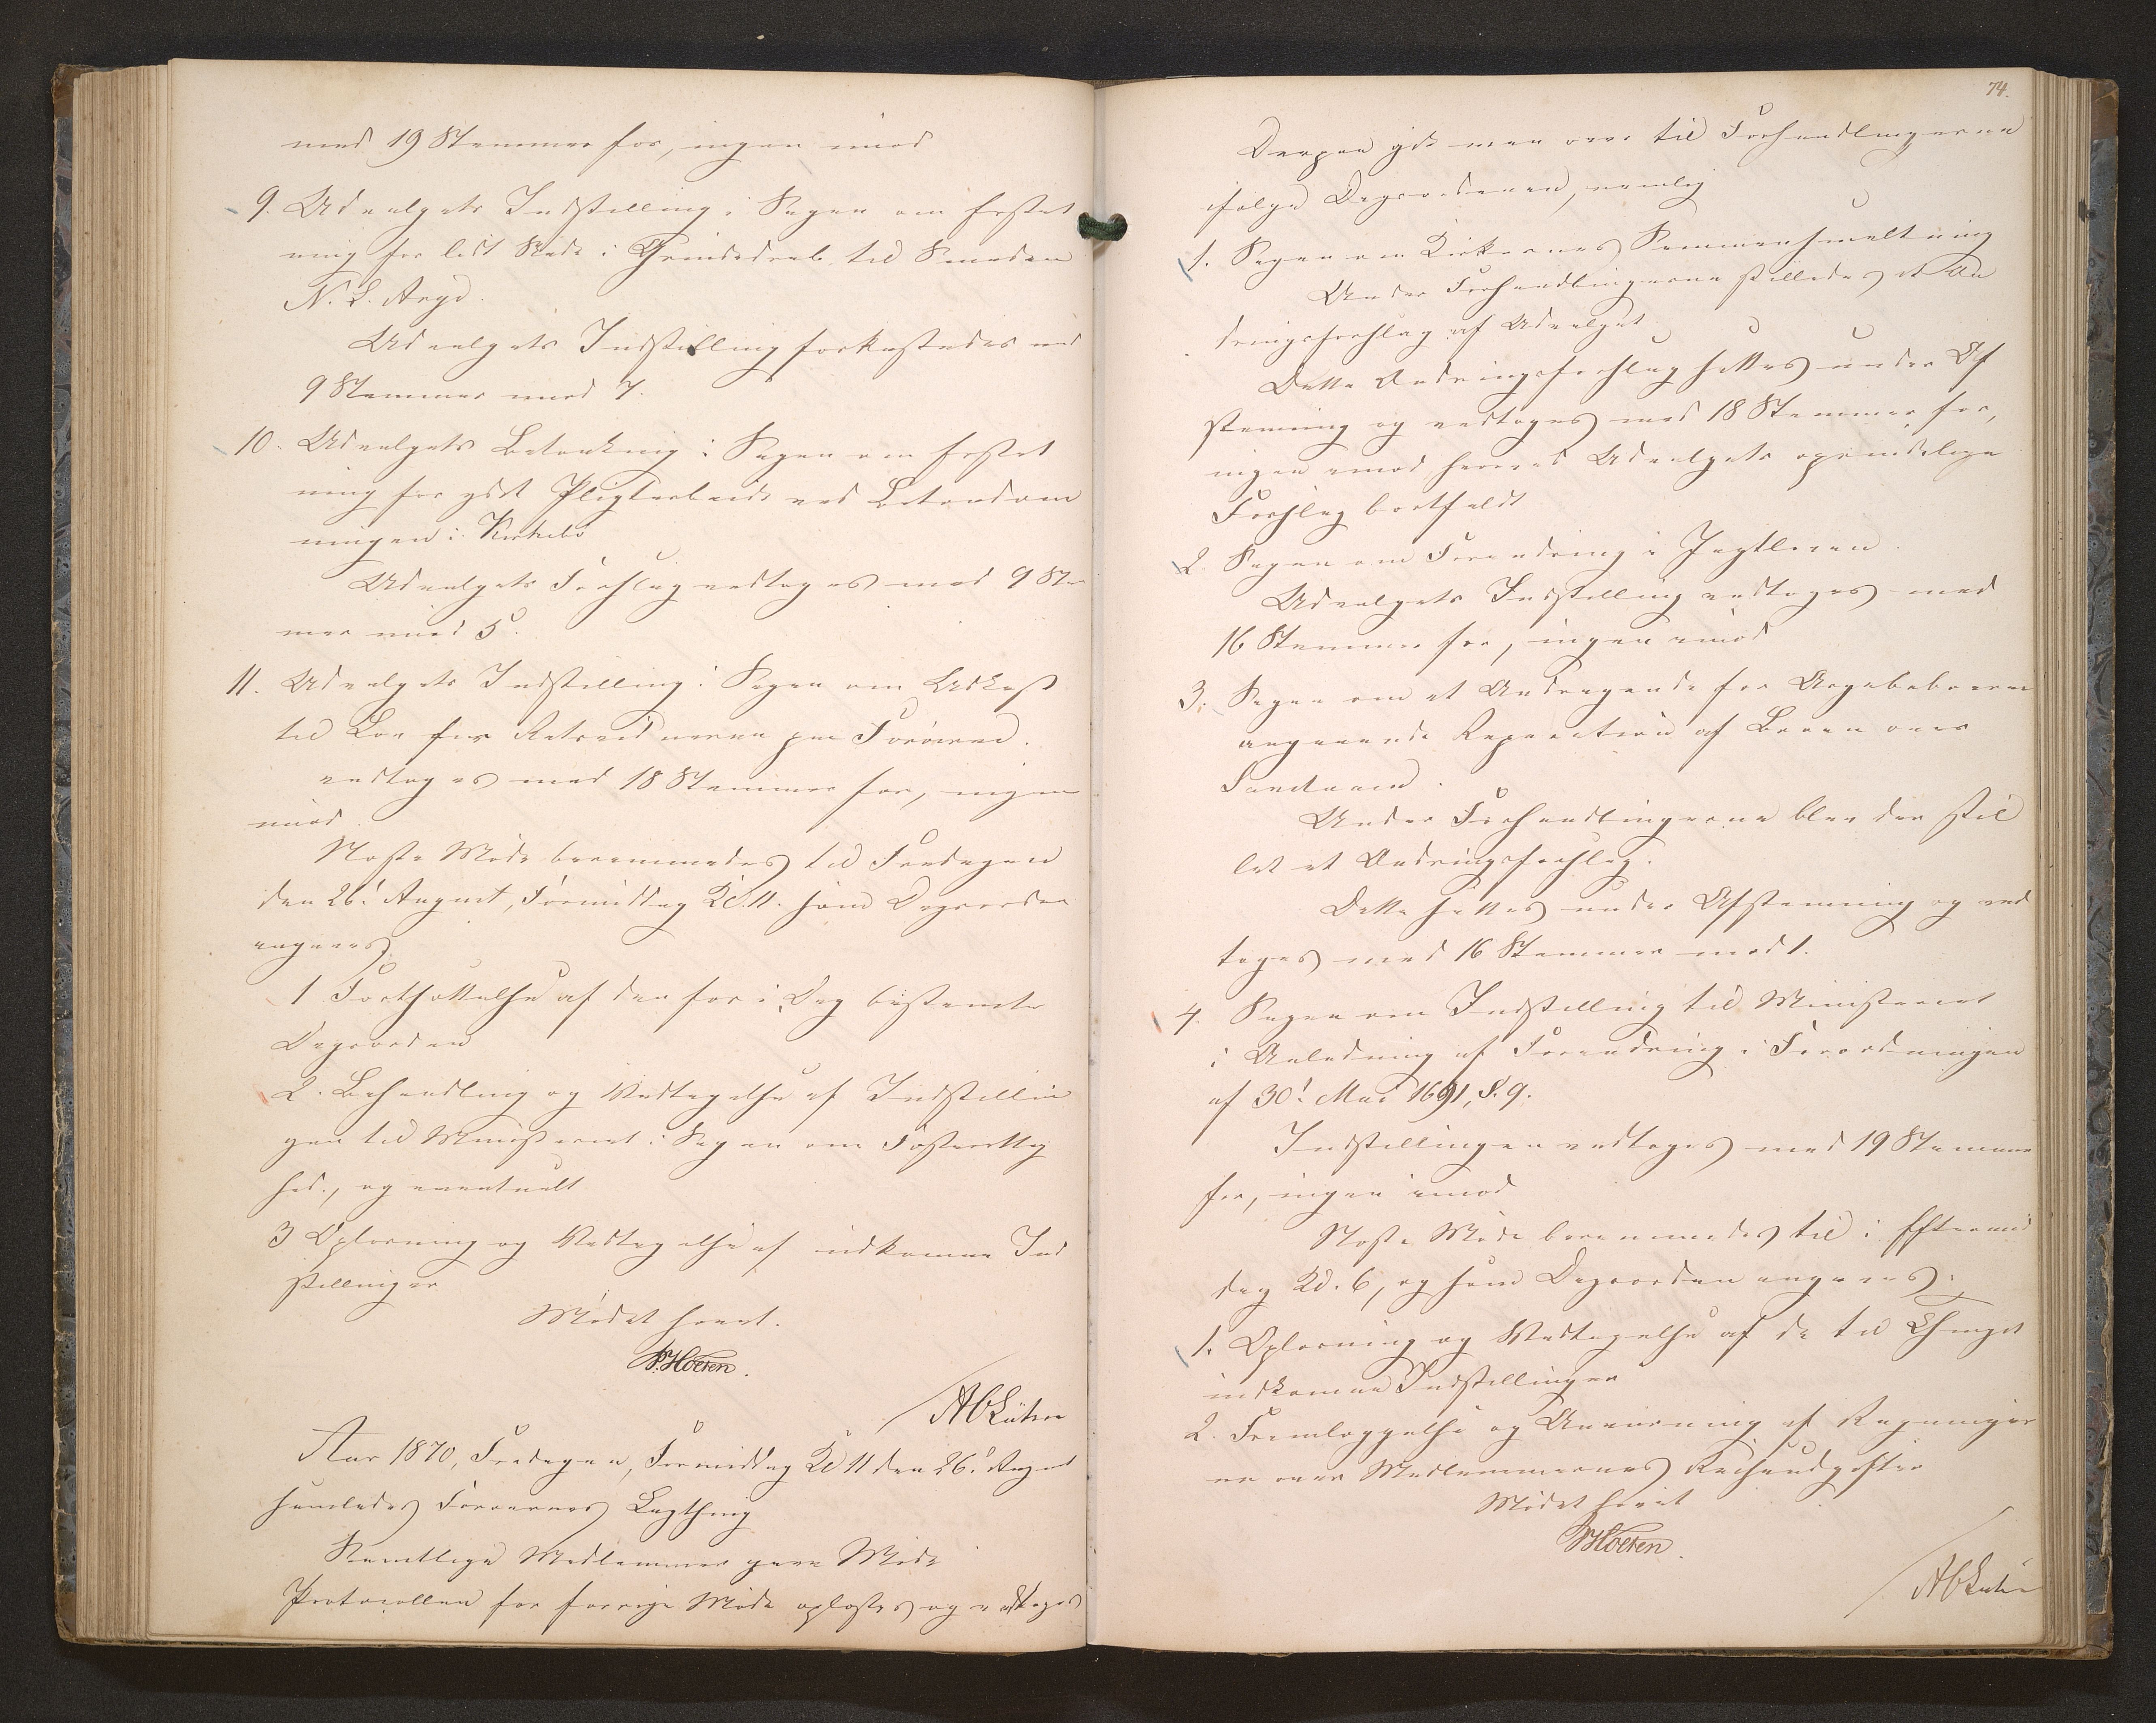 med 19 Stemmer for, ingen imod
9. Udvalgets Indstilling i Sagen om Erstat
ning for lidt Skade i Grindedrab til Smeden
N. L. Arge.
Udvalgets Indstilling forkastedes med
9 Stemmer mod 7.
10. Udvalgets Betænkning i Sagen om Erstat
ning for ydet Pligtarbeide ved
ningen i Kirkebø
Udvalgets Forslag vedtoges med 9 Stem
mer mod 5.
11. Udvalgets Indstilling i Sagen om Udkast
til Lov for Retsvidnerne paa Færøerne.
vedtoges med 18 Stemmer for, ingen
imod.
Næste Møde berammedes til Fredagen
den 26. August, Formiddag Kl. 11. som Dagsorden
angaves
1 Fortsættelse af den for i Dag bestemte
Dagsorden
2. Behandling og Vedtagelse af Indstillin
gen til Ministeriet i Sagen om
hed., og eventuelt
3 Oplæsning og Vedtagelse af indkomne Ind
stillinger
Mødet hævet.
ABLützen
Aar 1870, Fredagen, Formiddag Kl 11 den 26. August
samledes Færøernes Lagthing
Samtlige Medlemmer gave Møde
Protocollen for forrige Møde oplæstes og vedtoges
74.
Derpaa gik man over til Forhandlingerne
ifølge Dagsordenen, nemlig
1. Sagen om Kirkernes Sammensmeltning
Under Forhandlingerne stilledes et Æn
dringsforslag af Udvalget
Dette Ændringsforslag sattes under Af
stemning og vedtoges med 18 Stemmer for,
ingen imod hvorved Udvalgets oprindelige
Forslag bortfaldt
2. Sagen om Forandring i Jagtloven.
Udvalgets Indstilling vedtoges med
16 Stemmer for, ingen imod
3. Sagen om et Andragende fra Argebeboerne
angaaende Reparation af Broen over
Sandaaen.
Under Forhandlingerne blev der stil
let et Ændringsforslag.
Dette sattes under Afstemning og ved
toges med 16 Stemmer mod 1.
4. Sagen om Indstilling til Ministeriet
i Anledning af Forandring i Forordningen
af 30. Mai 1691, §. 9.
Indstillingen vedtoges med 19 Stemmer
for, ingen imod
Næste Møde berammedes til i Eftermid
dag Kl. 6, og som Dagsorden angaves:
1. Oplæsning og Vedtagelse af de til Thinget
indkomne Indstillinger
2. Fremlæggelse og Anvisning af Regninger
ne over Medlemmernes Reiseudgifter
Mødet hævet
ABLützen